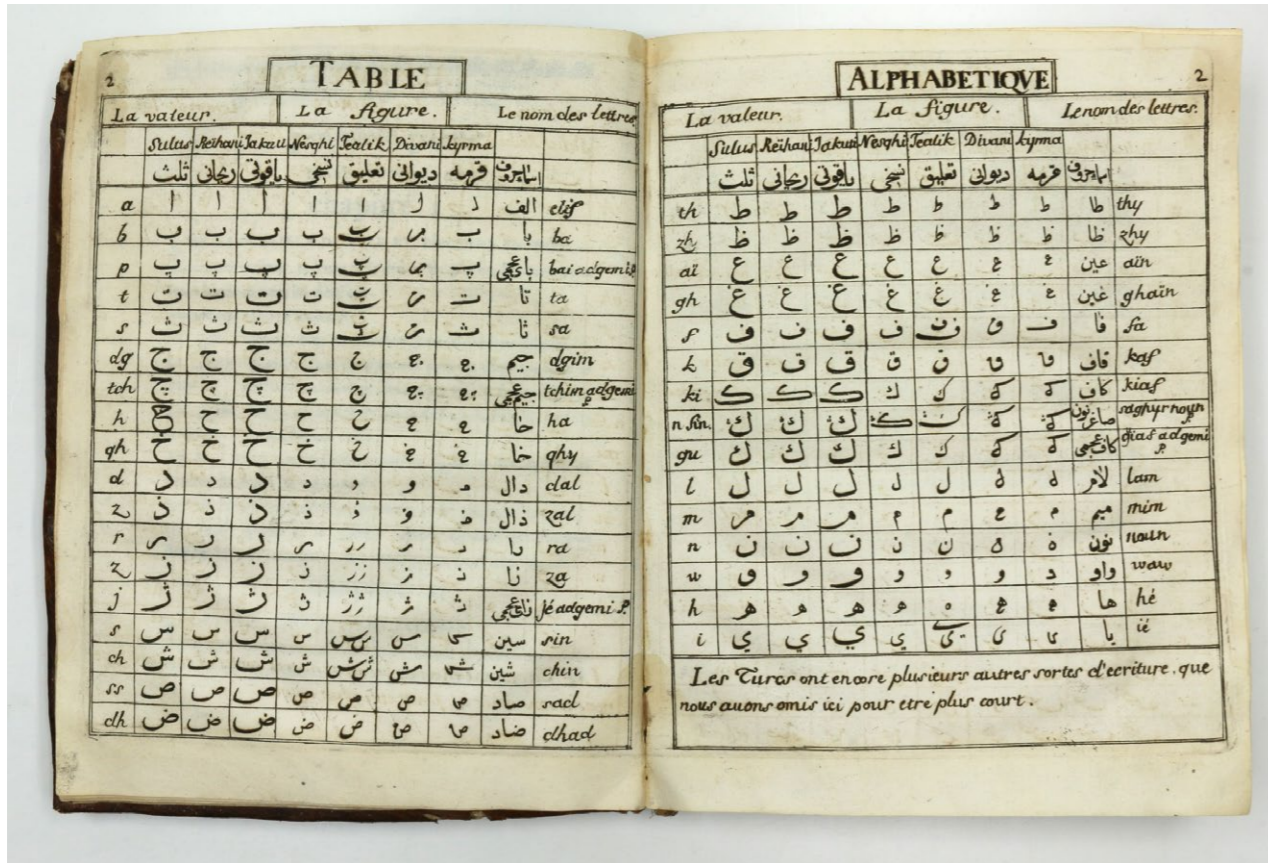 2
TABLE
La valeur. La figure. Le nom des lettres.
Sulus Reïhani Jakuti Nesghi Tealik Divani kyrma
ثلث ریحانی یاقوتی نسخی تعلیق دیوانی قرمه اسماء حروف
a ا ا ا ا ا ا ا الف elif
b ب ب ب ب ب ب ب با ba
p پ پ پ پ پ پ پ بای عجمی bai adgemi
t ت ت ت ت ت ت ت تا ta
s ث ث ث ث ث ث ث ثا sa
dg ج ج ج ج ج ج ج جیم dgim
tch چ چ چ چ چ چ چ جیم عجمی tchim adgemi
h ح ح ح ح ح ح ح حا ha
gh خ خ خ خ خ خ خ خا ghy
d د د د د د د د دال dal
z ذ ذ ذ ذ ذ ذ ذ ذال zal
r ر ر ر ر ر ر ر ر را ra
z ز ز ز ز ز ز ز ز زا za
j ژ ژ ژ ژ ژ ژ ژ ژ زای عجمی jé adgemi
s س س س س س س س س سین sin
ch ش ش ش ش ش ش ش ش شین chin
ss ص ص ص ص ص ص ص صاد sad
dh ض ض ض ض ض ض ض ضاد dhad
ALPHABETIQVE
2
La valeur. La figure. Le nom des lettres.
Sulus Reïhani Jakuti Nesghi Tealik Divani kyrma
ثلث ریحانی یاقوتی نسخی تعلیق دیوانی قرمه اسماء حروف
th ط ط ط ط ط ط ط طا thy
zh ظ ظ ظ ظ ظ ظ ظ ظا zhy
aï ع ع ع ع ع ع ع عین aïn
gh غ غ غ غ غ غ غ غین ghaïn
f ف ف ف ف ف ف ف فا fa
k ق ق ق ق ق ق ق قاف kaf
ki ك ك ك ك ك ك ك كاف kiaf
n fin. ڭ ڭ ڭ ڭ ڭ ڭ ڭ صاغر نون saghyr noun
gu ك ك ك ك ك ك ك كاف عجمی giaf adgemi
l ل ل ل ل ل ل ل لام lam
m م م م م م م م میم mim
n ن ن ن ن ن ن ن نون noun
w و و و و و و و واو waw
h ه ه ه ه ه ه ه ها hé
i ي ي ي ي ي ي ي یا ié
Les Turcs ont encore plusieurs autres sortes d'ecriture. que
nous auons omis ici pour etre plus court.